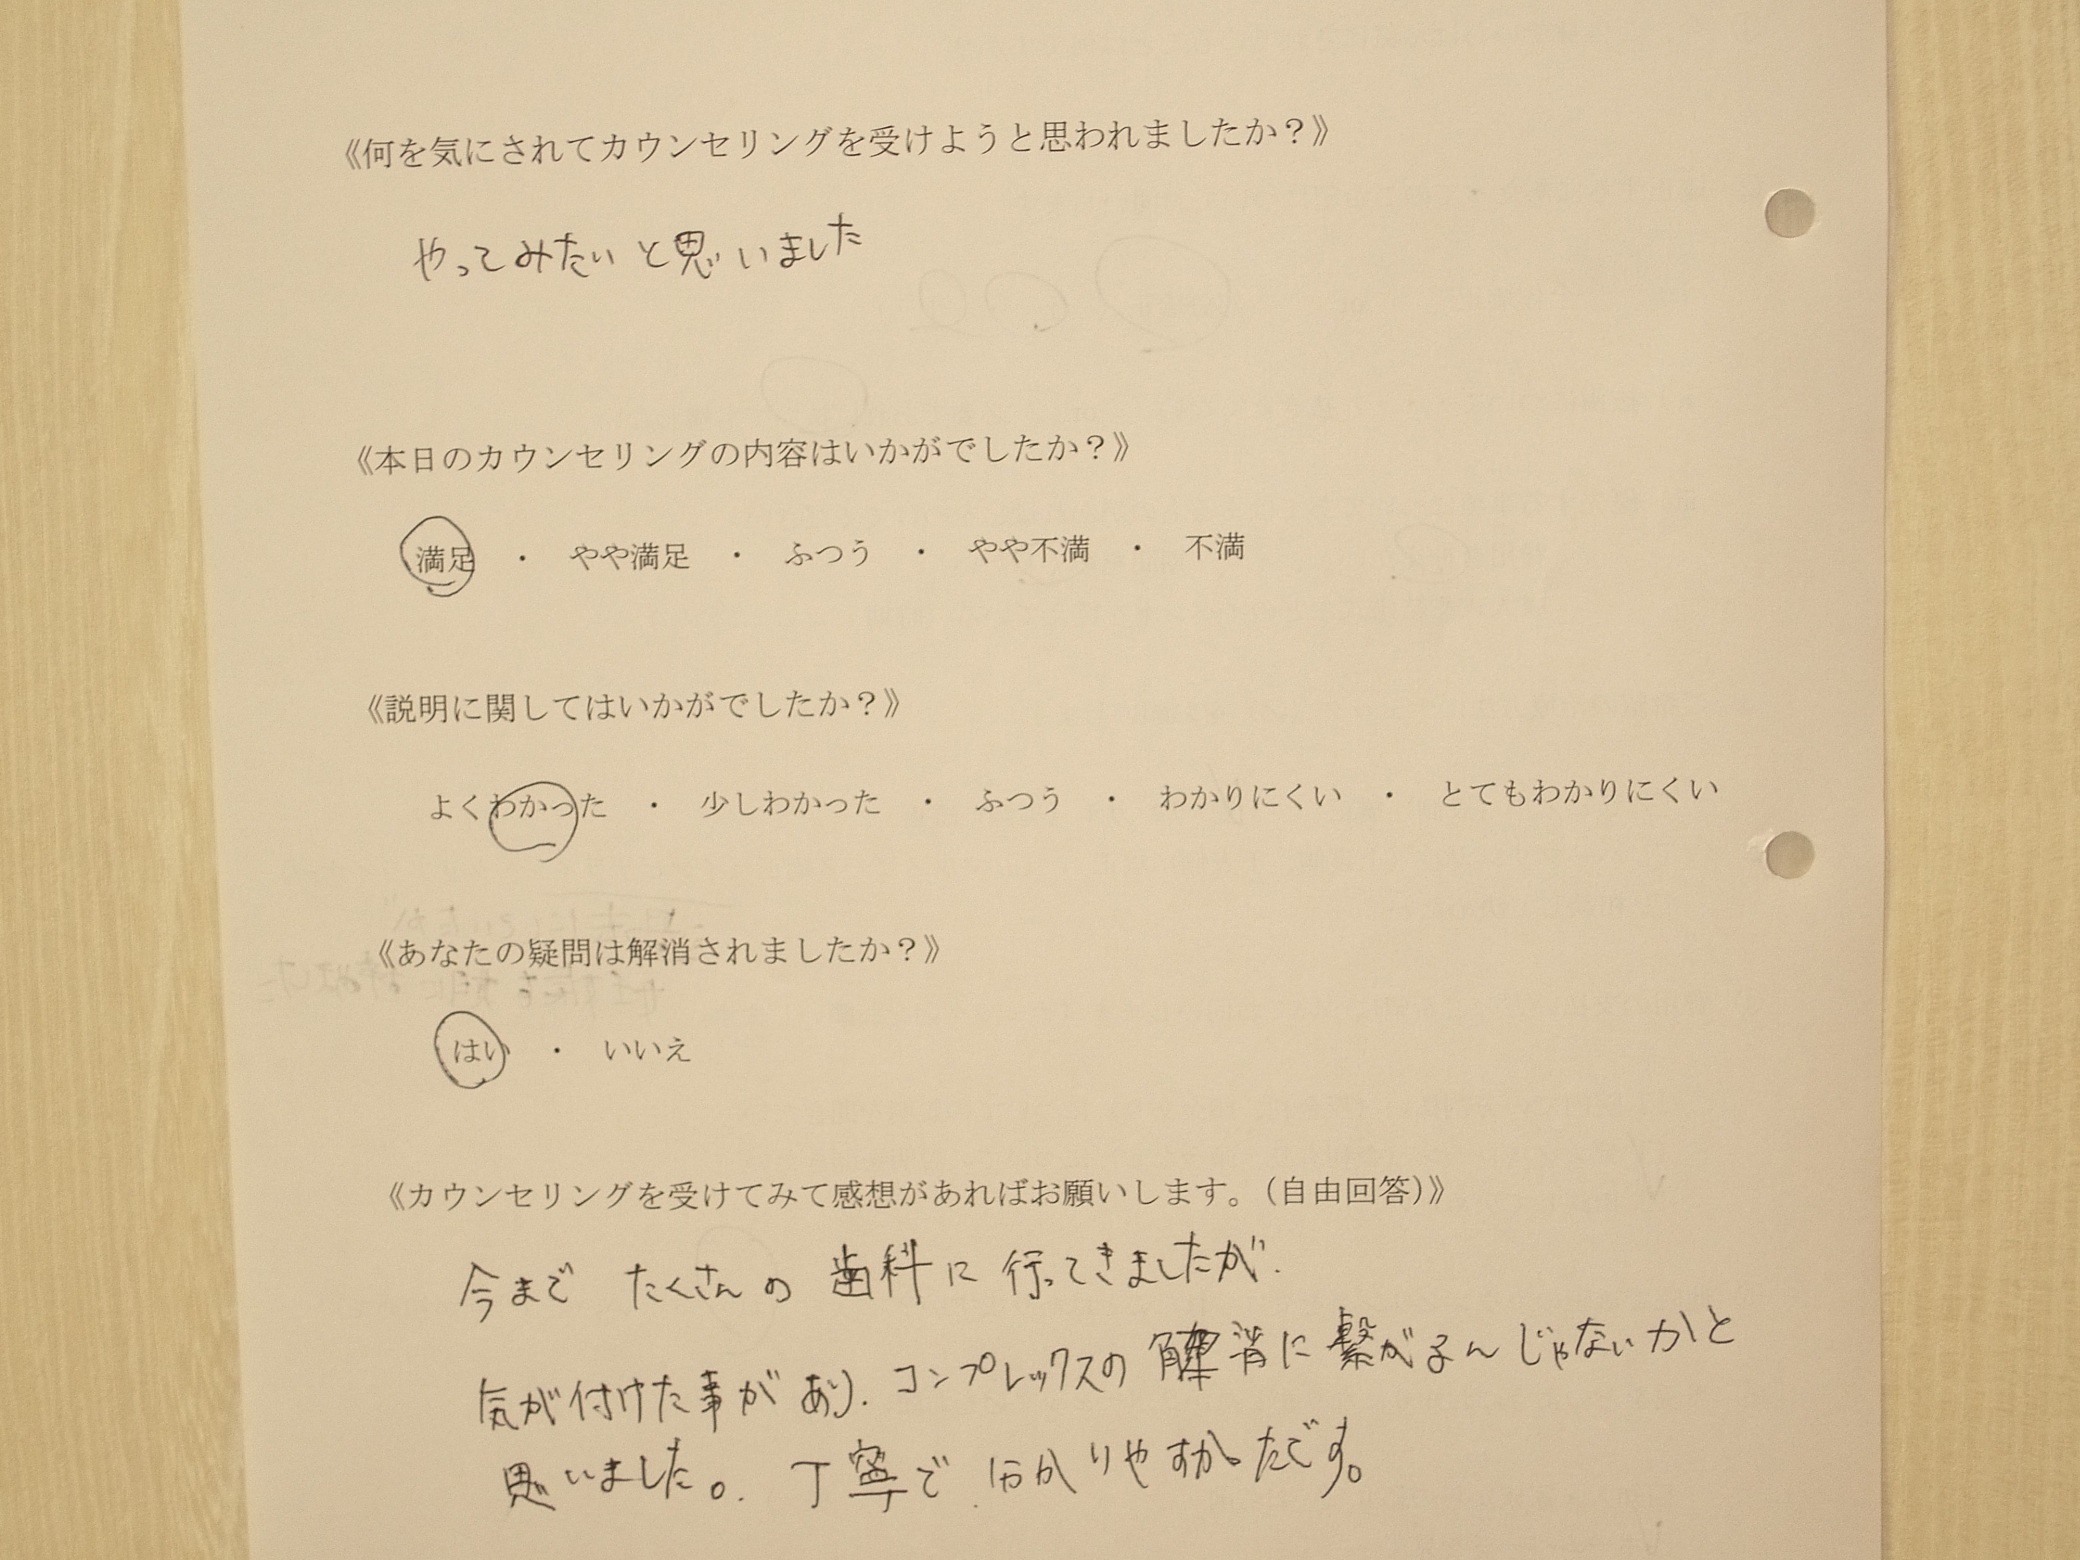 《何を気にされてカウンセリングを受けようと思われましたか？》
やってみたいと思いました
《本日のカウンセリングの内容はいかがでしたか？》
満足　・　やや満足　・　ふつう　・　やや不満　・　不満
《説明に関してはいかがでしたか？》
よくわかった　・　少しわかった　・　ふつう　・　わかりにくい　・　とてもわかりにくい
《あなたの疑問は解消されましたか？》
はい　・　いいえ
《カウンセリングを受けてみて感想があればお願いします。（自由回答）》
今まで たくさんの 歯科に 行ってきましたが、
気が付けた事があり、コンプレックスの解消に繋がるんじゃないかと
思いました。丁寧で 分かりやすかったです。